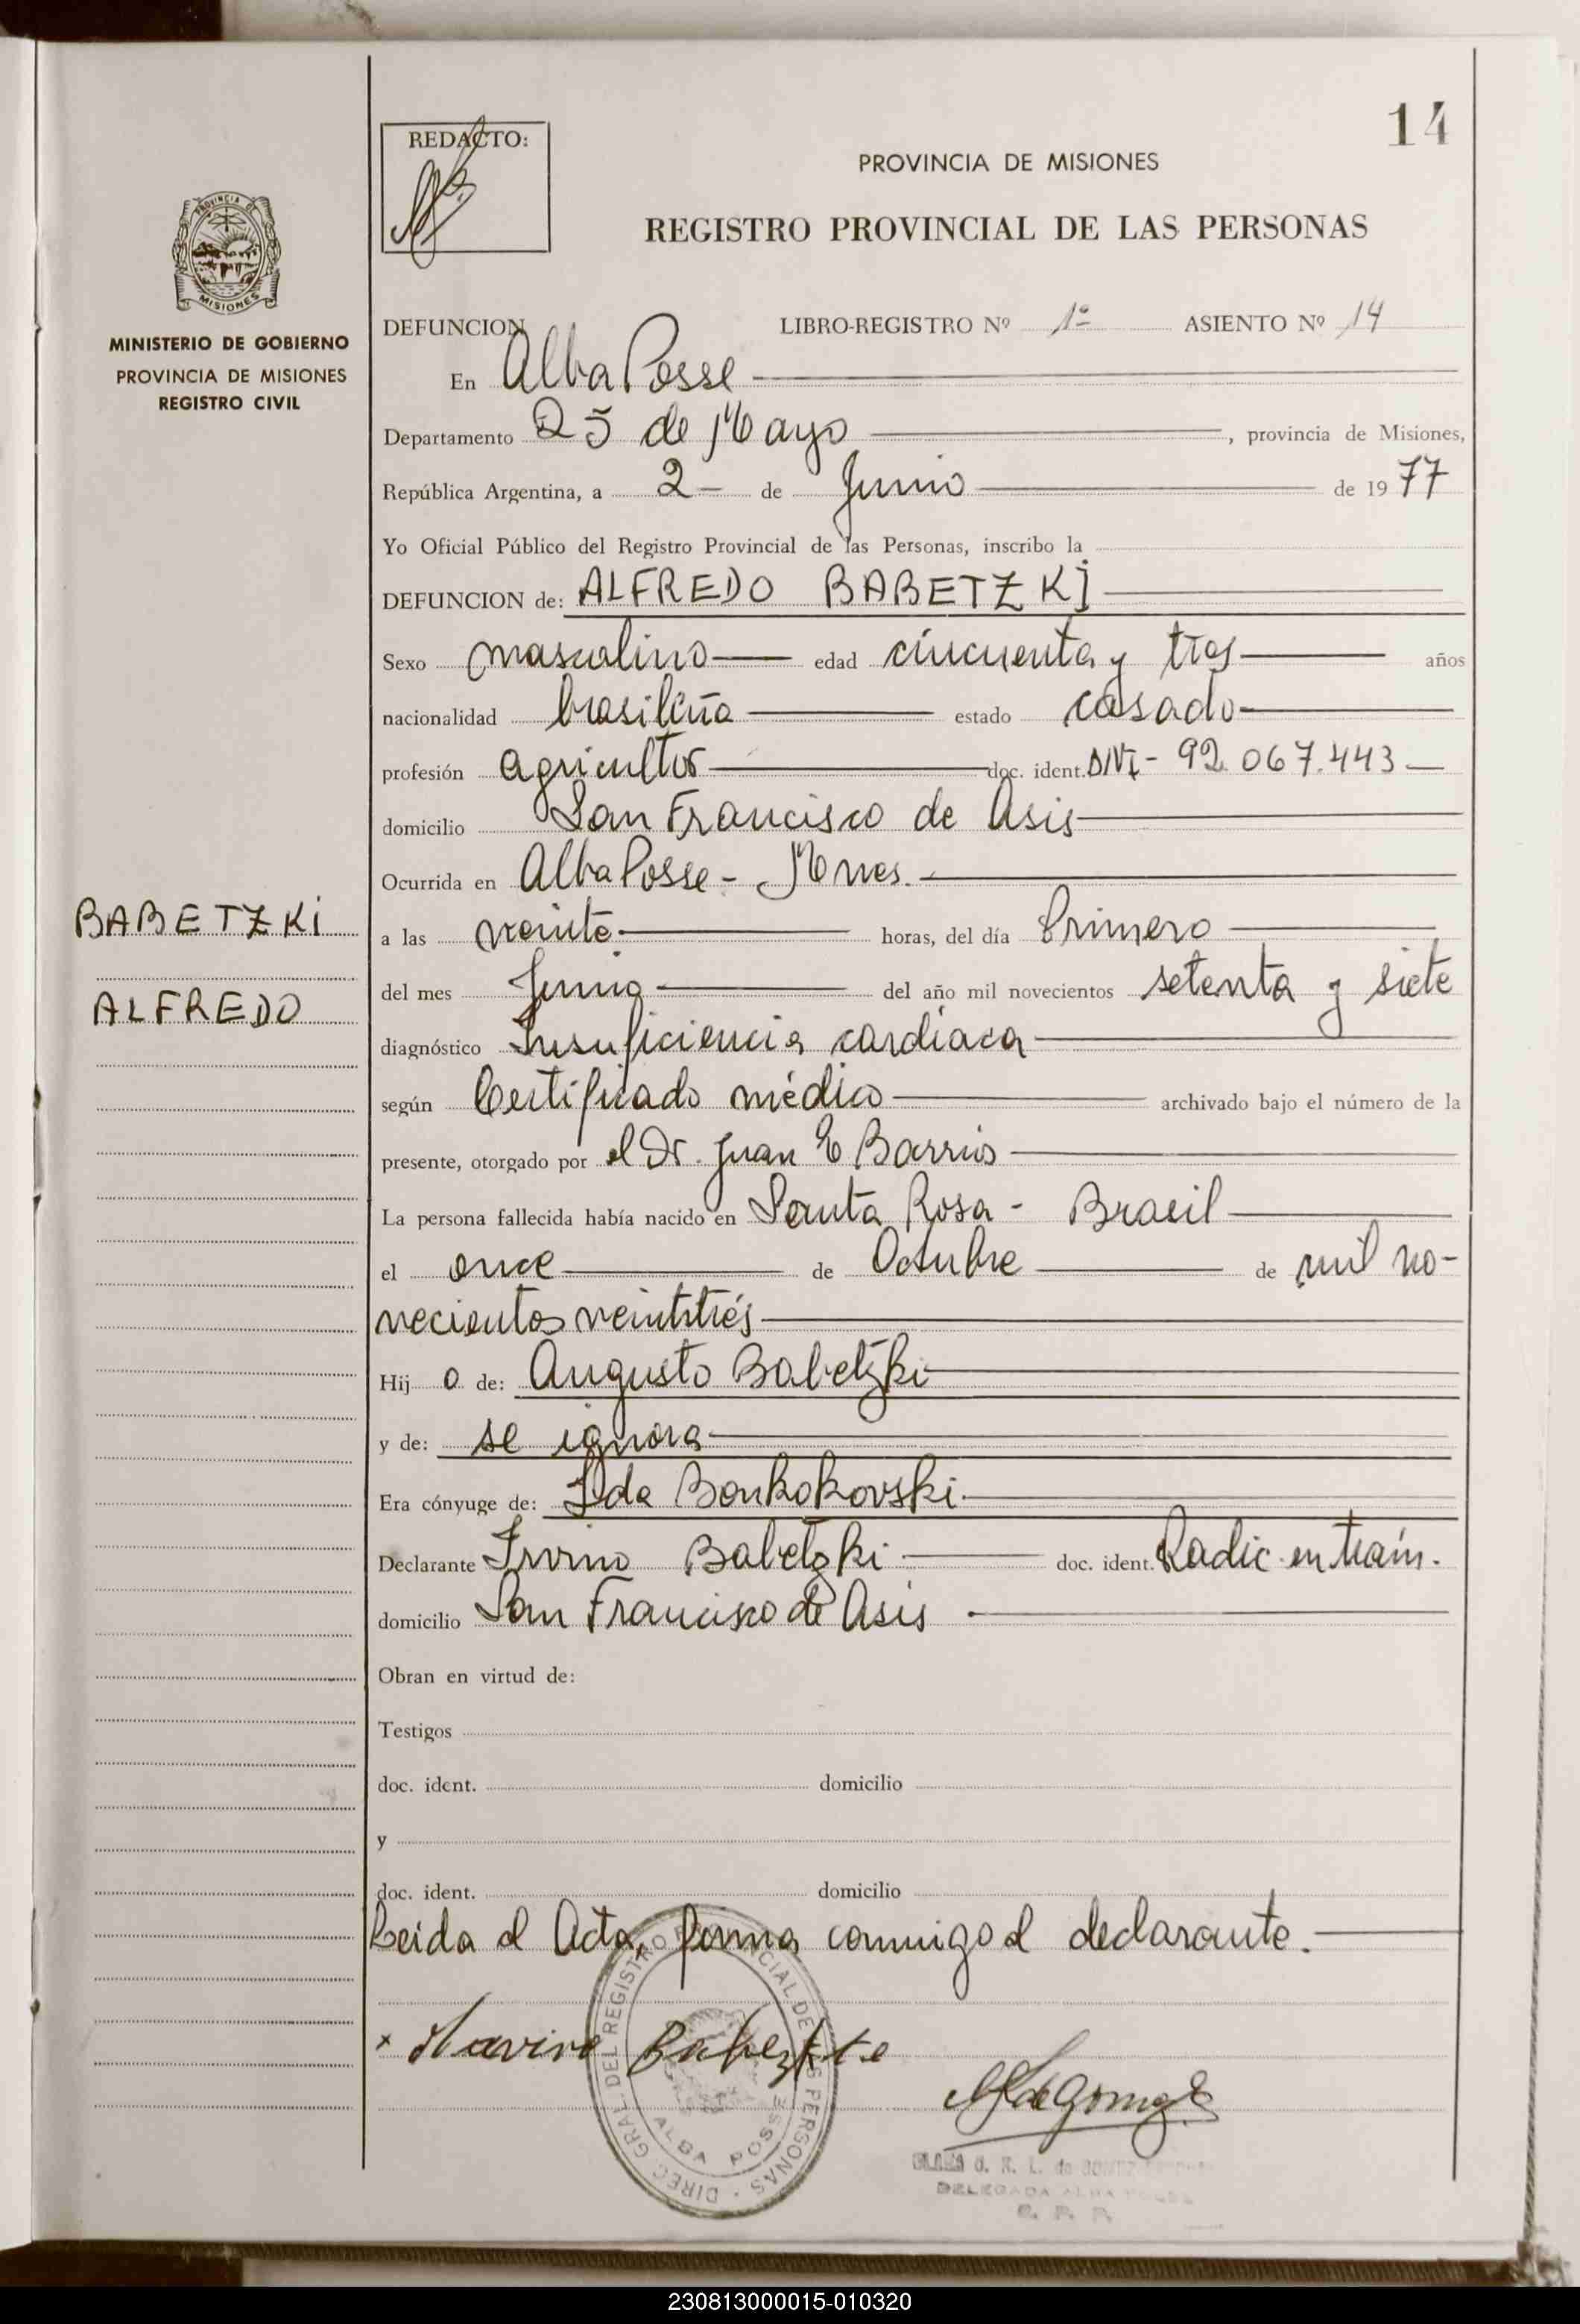 14
REDACTO:
PROVINCIA DE MISIONES
REGISTRO PROVINCIAL DE LAS PERSONAS
PROVINCIA DE
MISIONES
MINISTERIO DE GOBIERNO
PROVINCIA DE MISIONES
REGISTRO CIVIL
DEFUNCION LIBRO-REGISTRO Nº 1º ASIENTO Nº 14
En Alba Posse
Departamento 25 de Mayo, provincia de Misiones,
República Argentina, a 2 de Junio de 1977
Yo Oficial Público del Registro Provincial de las Personas, inscribo la
DEFUNCION de: ALFREDO BABETZKI
Sexo masculino edad cincuenta y tres años
nacionalidad brasileña estado casado
profesión agricultor doc. ident. DNI - 92.067.443
domicilio San Francisco de Asis
Ocurrida en Alba Posse - Mnes.
BABETZKI
ALFREDO
a las veinte horas, del día Primero
del mes Junio del año mil novecientos setenta y siete
diagnóstico Insuficiencia cardíaca
según Certificado médico archivado bajo el número de la
presente, otorgado por el Dr. Juan E Barrios
La persona fallecida había nacido en Santa Rosa - Brasil
el once de Octubre de mil no-
vecientos veintitrés
Hij o de: Augusto Babetzki
y de: se ignora
Era cónyuge de: Ida Bonkokovski
Declarante Irvino Babetzki doc. ident. Radic. en trám.
domicilio San Francisco de Asis
Obran en virtud de:
Testigos
doc. ident. domicilio
y
doc. ident. domicilio
Leida el Acta, firma conmigo el declarante.
DIREC. GRAL. DEL REGISTRO PROVINCIAL DE LAS PERSONAS
ALBA POSSE
DELEGADA ALBA POSSE
230813000015-010320